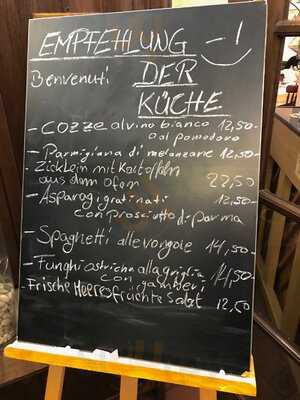 EMPFEHLUNG
Benvenuti DER
KÜCHE
- COZZE al vino bianco 12,50-
o al pomodoro
- Parmigiana di melanzane 12,50-
Zicklein mit Kartoffeln
aus dem Ofen 22,50
- Asparagi gratinati 12,50-
con prosciutto di parma
- Spaghetti alle vongole 14,50-
- Funghi ostriche alla griglia
con gamberi 14,50
- Frische Meeresfrüchte Salat 12,50